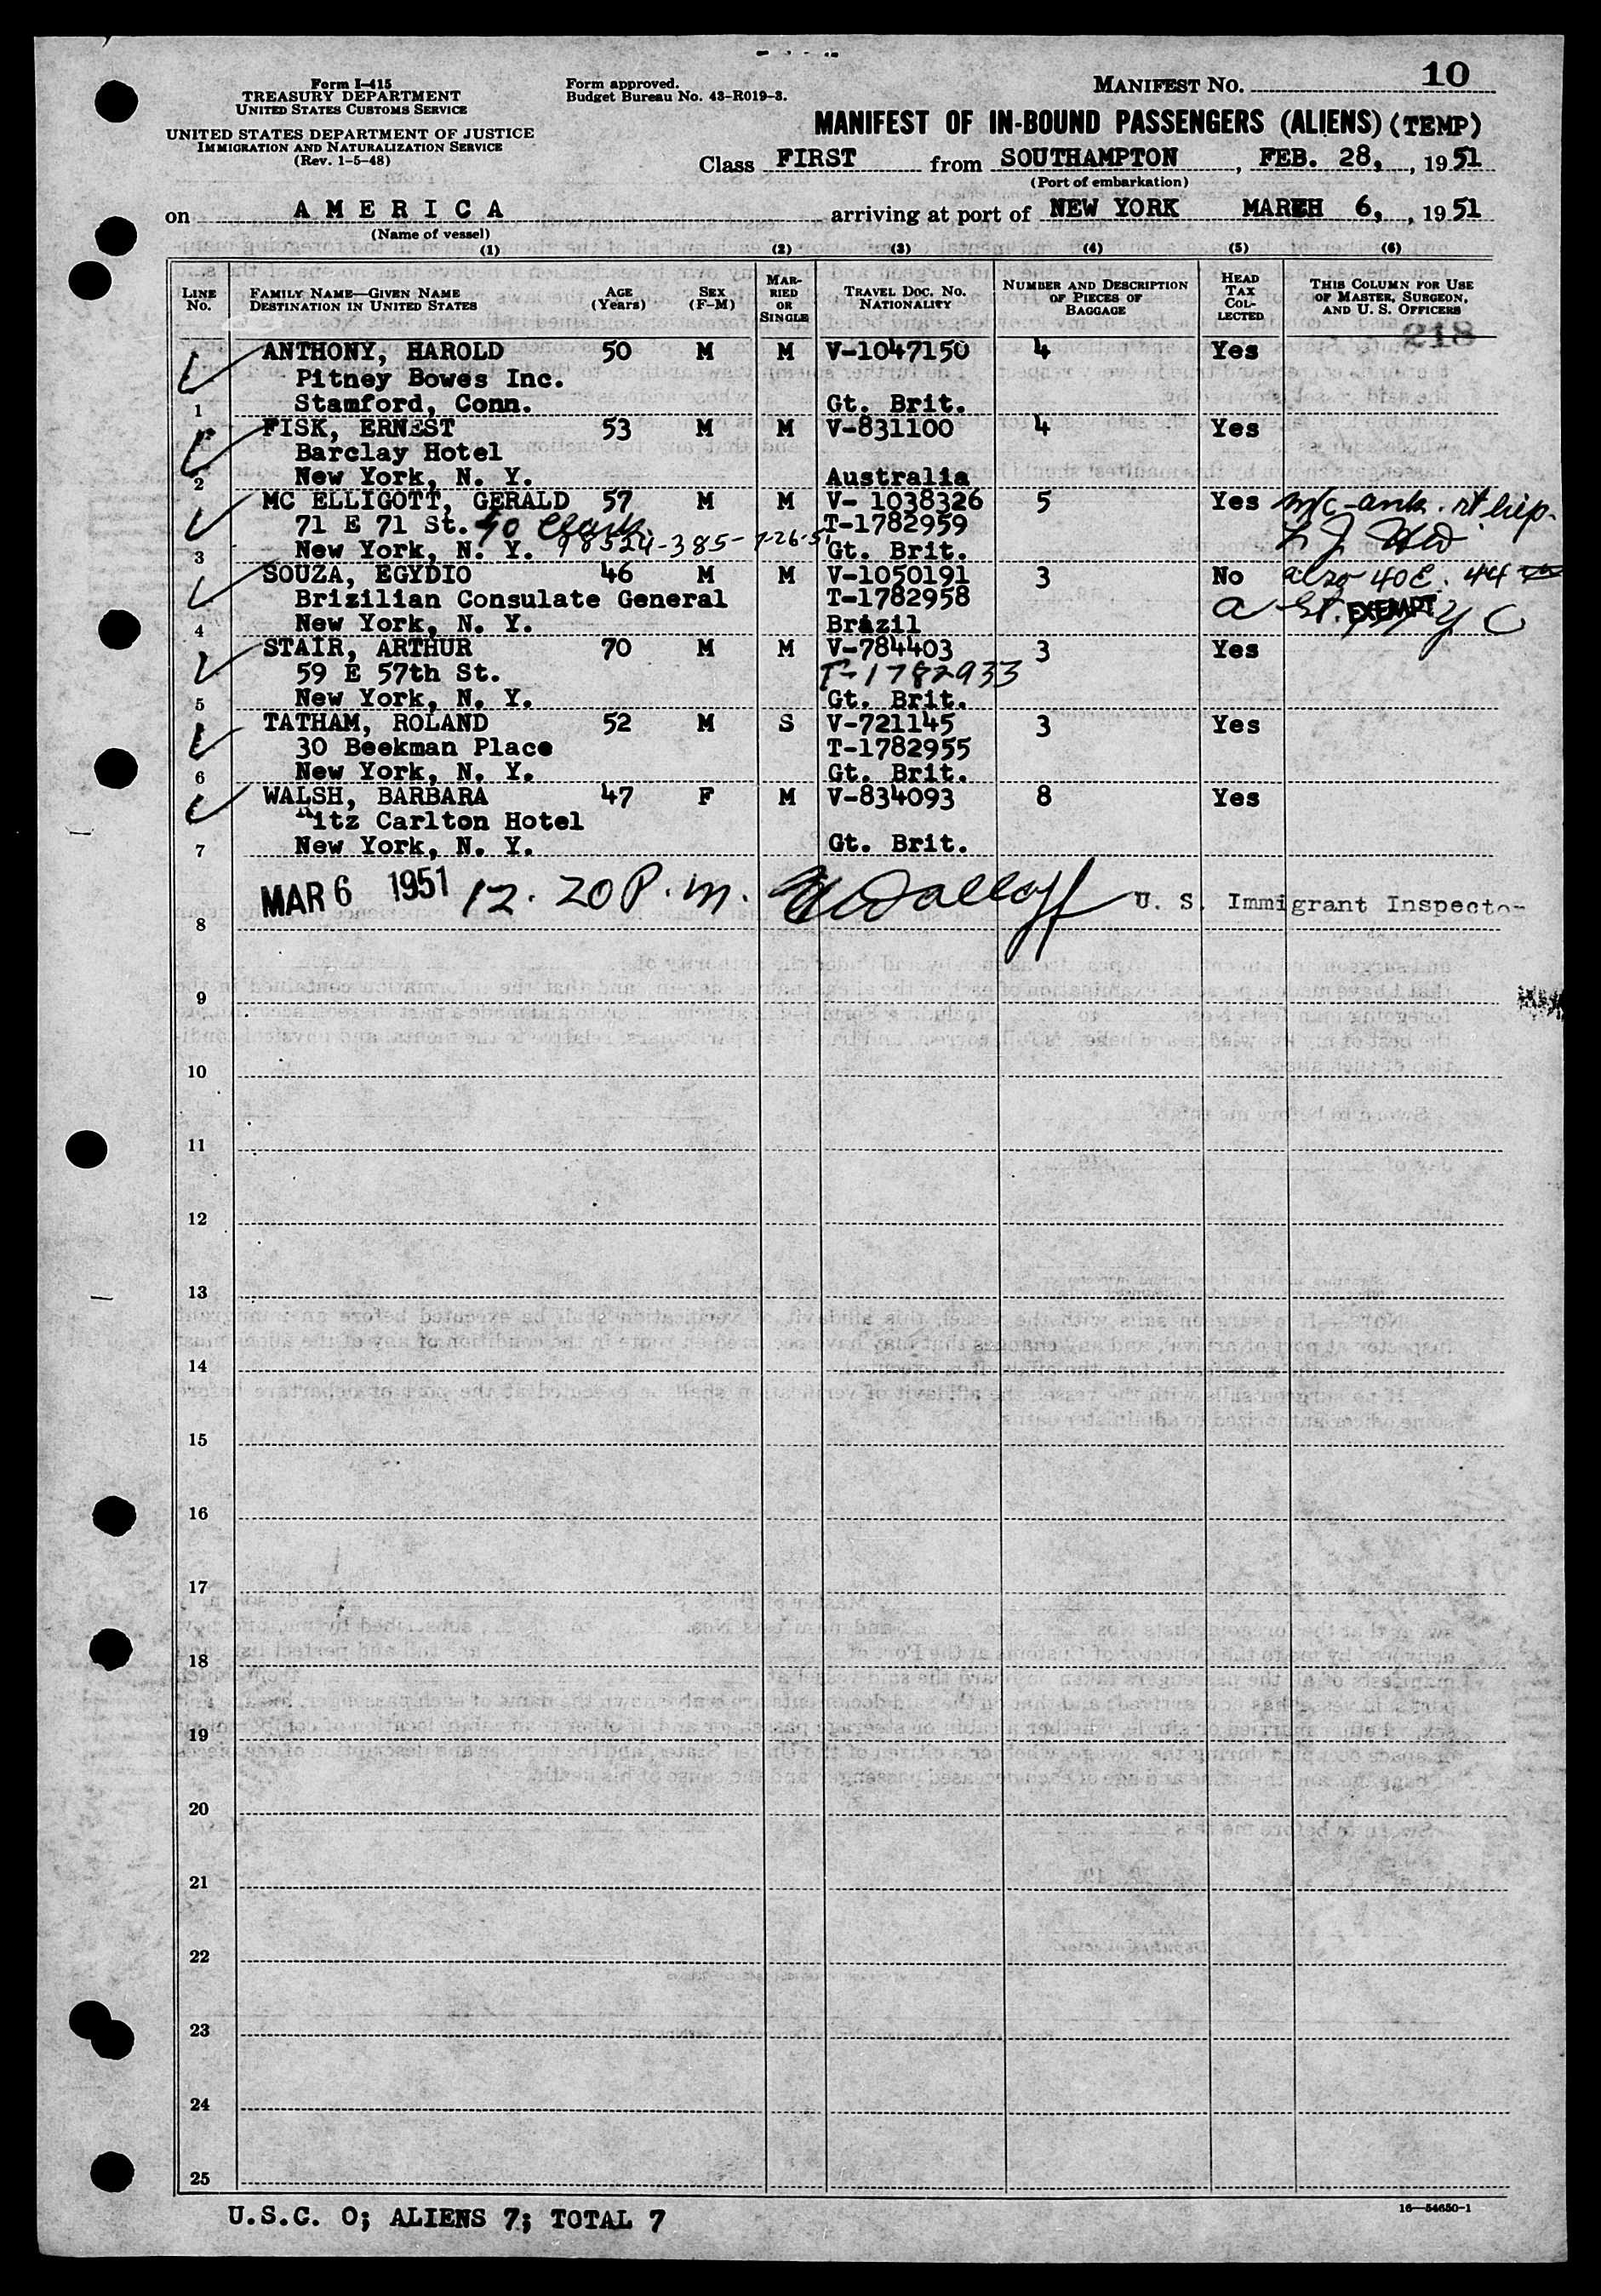 Form I-415
TREASURY DEPARTMENT
UNITED STATES CUSTOMS SERVICE
UNITED STATES DEPARTMENT OF JUSTICE
IMMIGRATION AND NATURALIZATION SERVICE
(Rev. 1-5-48)
Form approved.
Budget Bureau No. 43-R019-3.
MANIFEST NO. 10
MANIFEST OF IN-BOUND PASSENGERS (ALIENS) (TEMP)
Class FIRST from SOUTHAMPTON, FEB. 28, , 1951
(Port of embarkation)
on AMERICA arriving at port of NEW YORK MARCH 6, , 1951
(Name of vessel)
(1) (2) (3) (4) (5) (6)
LINE No. FAMILY NAME—GIVEN NAME DESTINATION IN UNITED STATES AGE (Years) SEX (F-M) MARRIED OR SINGLE TRAVEL DOC. NO. NATIONALITY NUMBER AND DESCRIPTION OF PIECES OF BAGGAGE HEAD TAX COLLECTED THIS COLUMN FOR USE OF MASTER, SURGEON, AND U. S. OFFICERS
218
ANTHONY, HAROLD 50 M M V-1047150 4 Yes
Pitney Bowes Inc.
1 Stamford, Conn. Gt. Brit.
FISK, ERNEST 53 M M V-831100 4 Yes
Barclay Hotel
2 New York, N. Y. Australia
MC ELLIGOTT, GERALD 57 M M V- 1038326 5 Yes m/c-ank. rt hip.
71 E 71 St. T-1782959
3 New York, N. Y. 98524-385- 7-26-51 Gt. Brit.
SOUZA, EGYDIO 46 M M V-1050191 3 No also 40 E. 44
Brizilian Consulate General T-1782958 St. EXEMPT N Y C
4 New York, N. Y. Brazil
STAIR, ARTHUR 70 M M V-784403 3 Yes
59 E 57th St. T-1782933
5 New York, N. Y. Gt. Brit.
TATHAM, ROLAND 52 M S V-721145 3 Yes
30 Beekman Place T-1782955
6 New York, N. Y. Gt. Brit.
WALSH, BARBARA 47 F M V-834093 8 Yes
Ritz Carlton Hotel
7 New York, N. Y. Gt. Brit.
MAR 6 1951 12.20 P.m. U. S. Immigrant Inspector
8
9
10
11
12
13
14
15
16
17
18
19
20
21
22
23
24
25
U.S.C. 0; ALIENS 7; TOTAL 7
16—54650-1